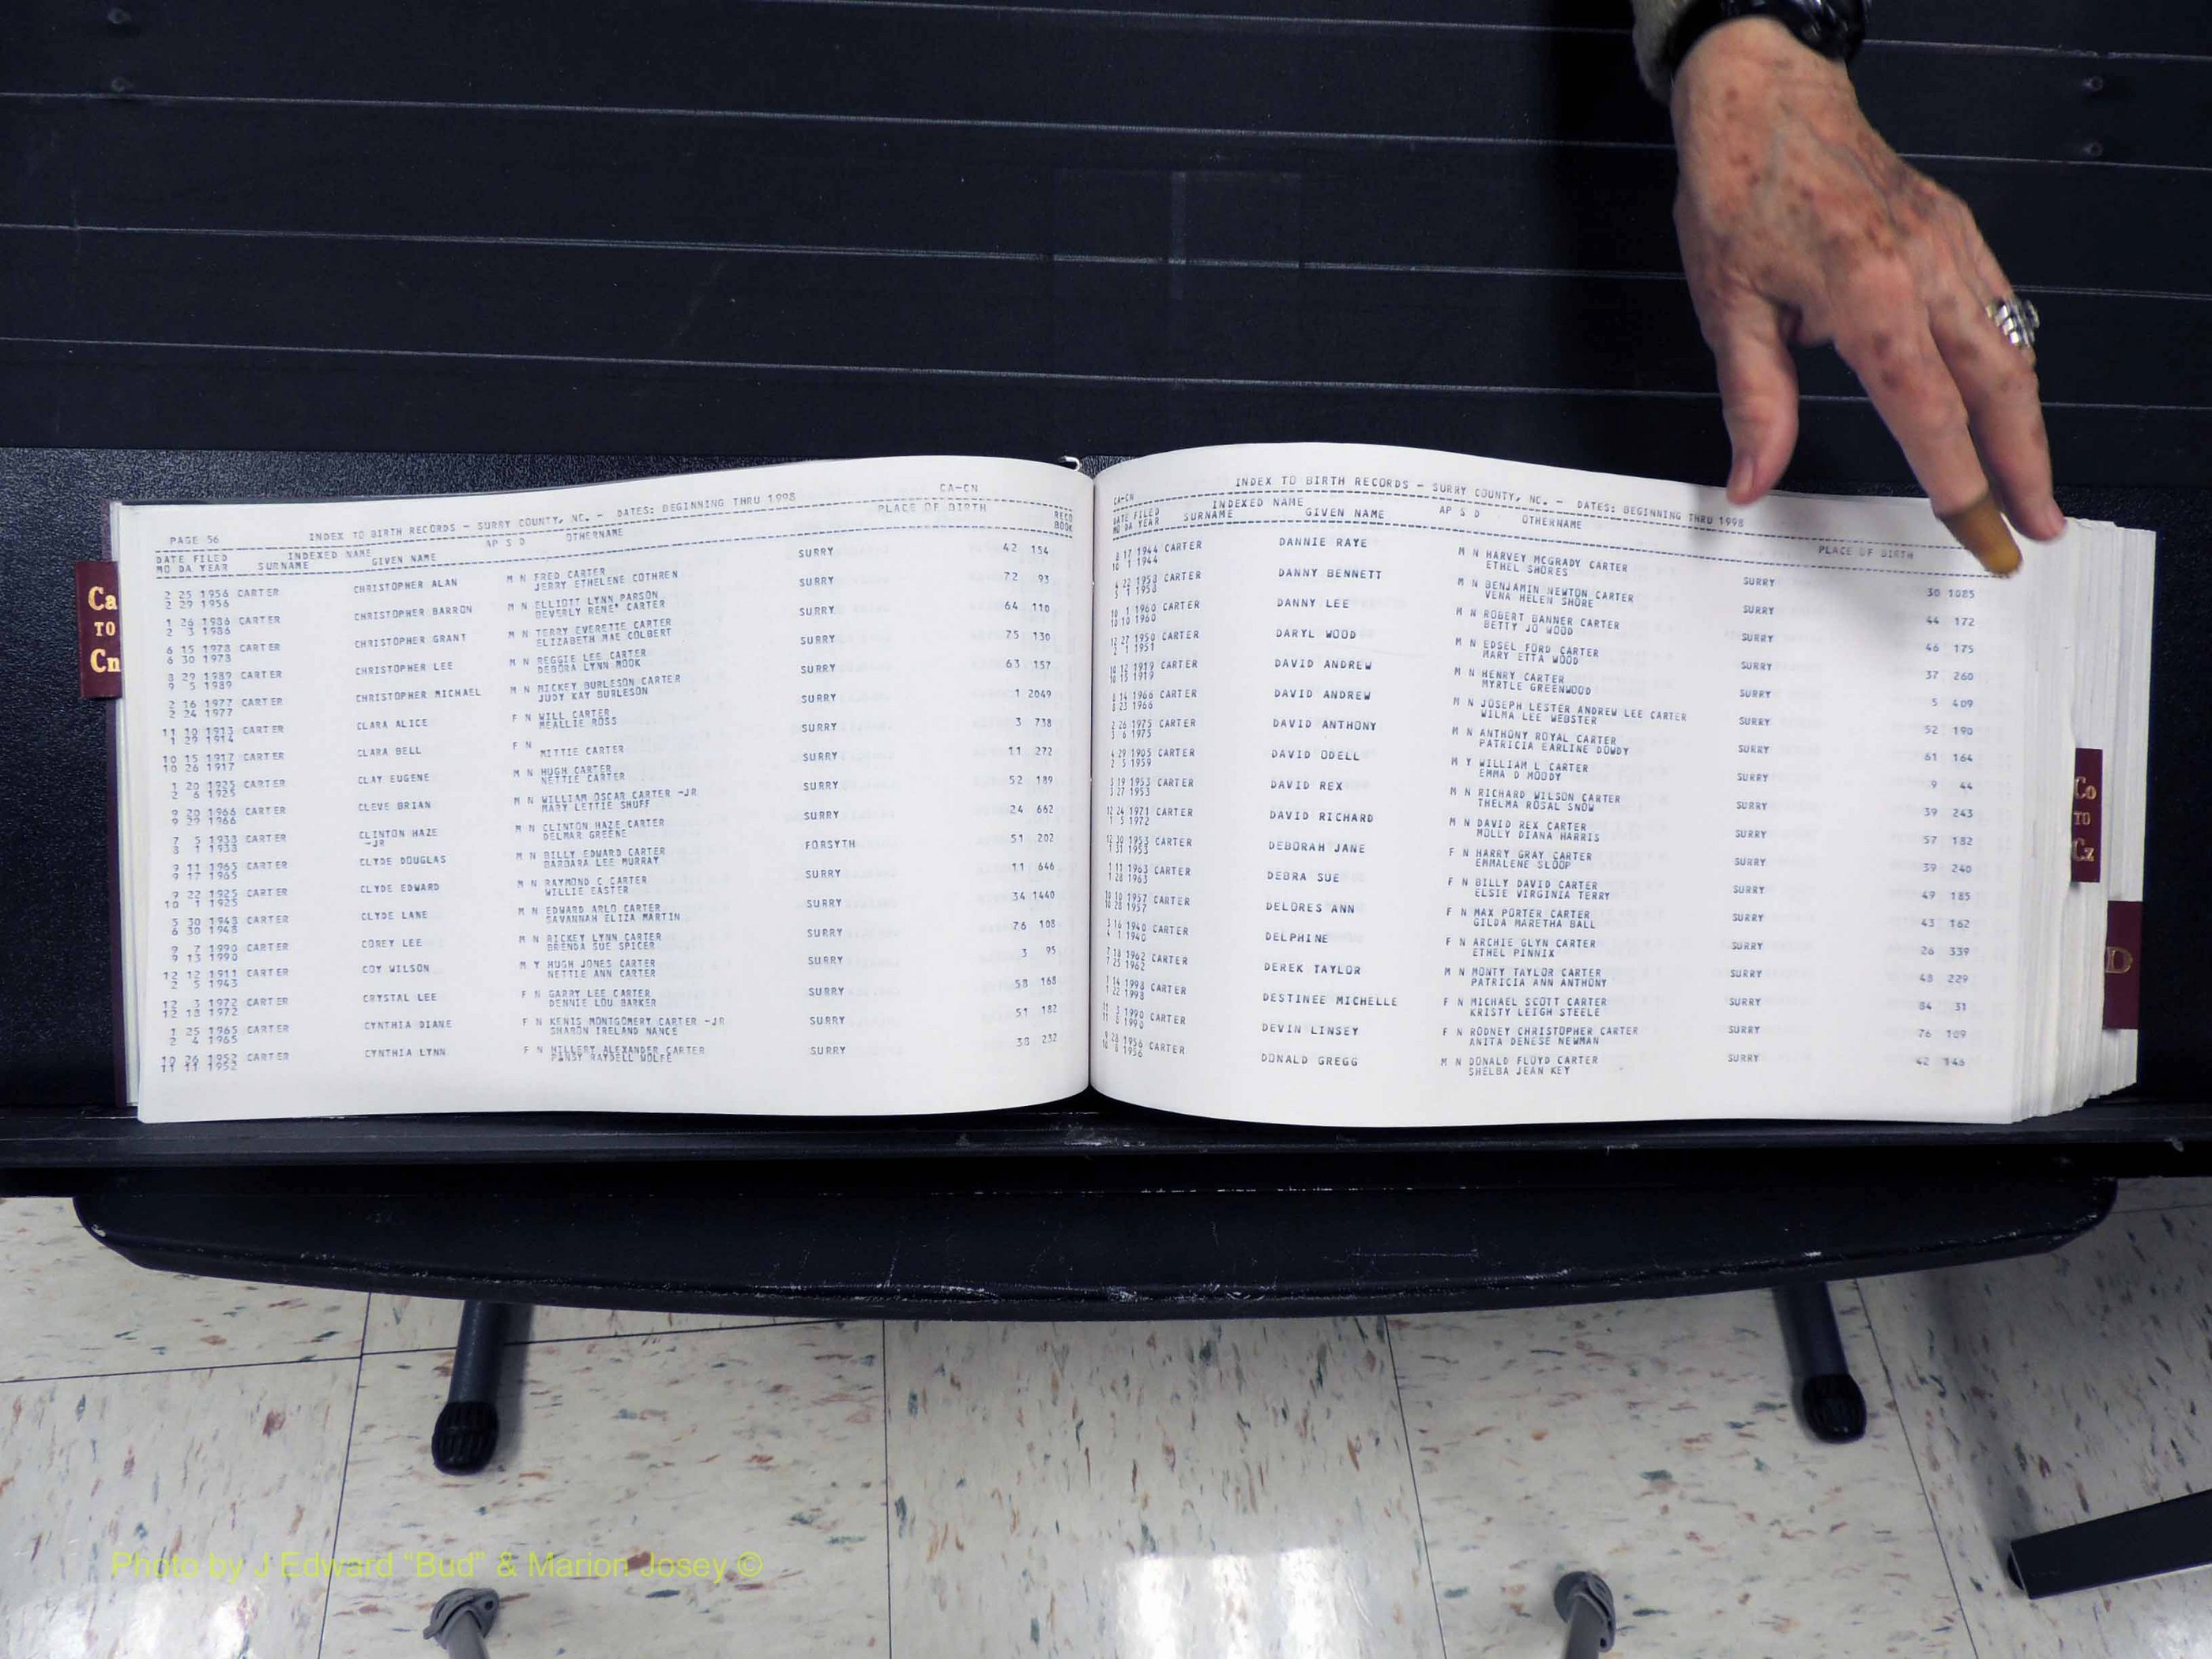 PAGE 56 INDEX TO BIRTH RECORDS - SURRY COUNTY, NC. - DATES: BEGINNING THRU 1998 CA-CN
DATE FILED INDEXED NAME AP S D OTHERNAME PLACE OF BIRTH RECD
MO DA YEAR SURNAME GIVEN NAME BOOK
2 25 1956 CARTER CHRISTOPHER ALAN M N FRED CARTER SURRY 42 154
2 29 1956 JERRY ETHELENE COTHREN
1 26 1986 CARTER CHRISTOPHER BARRON M N ELLIOTT LYNN PARSON SURRY 72 93
2 3 1986 BEVERLY RENE' CARTER
6 15 1978 CARTER CHRISTOPHER GRANT M N TERRY EVERETTE CARTER SURRY 64 110
6 30 1978 ELIZABETH MAE COLBERT
8 29 1989 CARTER CHRISTOPHER LEE M N REGGIE LEE CARTER SURRY 75 130
9 5 1989 DEBORA LYNN MOOK
2 16 1977 CARTER CHRISTOPHER MICHAEL M N MICKEY BURLESON CARTER SURRY 63 157
2 24 1977 JUDY KAY BURLESON
11 10 1913 CARTER CLARA ALICE F N WILL CARTER SURRY 1 2049
1 29 1914 MEALLIE ROSS
10 15 1917 CARTER CLARA BELL F N SURRY 3 738
10 26 1917 MITTIE CARTER
1 20 1925 CARTER CLAY EUGENE M N HUGH CARTER SURRY 11 272
2 6 1925 NETTIE CARTER
9 20 1966 CARTER CLEVE BRIAN M N WILLIAM OSCAR CARTER -JR SURRY 52 189
9 29 1966 MARY LETTIE SHUFF
7 5 1938 CARTER CLINTON HAZE M N CLINTON HAZE CARTER SURRY 24 662
8 1 1938 -JR DELMAR GREENE
9 11 1965 CARTER CLYDE DOUGLAS M N BILLY EDWARD CARTER FORSYTH 51 202
9 17 1965 BARBARA LEE MURRAY
9 22 1925 CARTER CLYDE EDWARD M N RAYMOND C CARTER SURRY 11 646
10 1 1925 WILLIE EASTER
5 30 1948 CARTER CLYDE LANE M N EDWARD ARLO CARTER SURRY 34 1440
6 30 1948 SAVANNAH ELIZA MARTIN
9 7 1990 CARTER COREY LEE M N RICKEY LYNN CARTER SURRY 76 108
9 13 1990 BRENDA SUE SPICER
12 12 1911 CARTER COY WILSON M Y HUGH JONES CARTER SURRY 3 95
2 5 1943 NETTIE ANN CARTER
12 3 1972 CARTER CRYSTAL LEE F N GARRY LEE CARTER SURRY 58 168
12 18 1972 DENNIE LOU BARKER
1 25 1965 CARTER CYNTHIA DIANE F N KENIS MONTGOMERY CARTER -JR SURRY 51 182
2 4 1965 SHARON IRELAND NANCE
10 26 1952 CARTER CYNTHIA LYNN F N HILLERY ALEXANDER CARTER SURRY 38 232
11 11 1952 PANSY RAYDELL WOLFE
CA-CN INDEX TO BIRTH RECORDS - SURRY COUNTY, NC. - DATES: BEGINNING THRU 1998
DATE FILED INDEXED NAME AP S D OTHERNAME PLACE OF BIRTH
MO DA YEAR SURNAME GIVEN NAME
8 17 1944 CARTER DANNIE RAYE M N HARVEY MCGRADY CARTER SURRY 30 1085
10 1 1944 ETHEL SHORES
4 22 1958 CARTER DANNY BENNETT M N BENJAMIN NEWTON CARTER SURRY 44 172
5 1 1958 VENA HELEN SHORE
10 1 1960 CARTER DANNY LEE M N ROBERT BANNER CARTER SURRY 46 175
10 10 1960 BETTY JO WOOD
12 27 1950 CARTER DARYL WOOD M N EDSEL FORD CARTER SURRY 37 260
2 1 1951 MARY ETTA WOOD
10 12 1919 CARTER DAVID ANDREW M N HENRY CARTER SURRY 5 409
10 15 1919 MYRTLE GREENWOOD
8 14 1966 CARTER DAVID ANDREW M N JOSEPH LESTER ANDREW LEE CARTER SURRY 52 190
8 23 1966 WILMA LEE WEBSTER
2 26 1975 CARTER DAVID ANTHONY M N ANTHONY ROYAL CARTER SURRY 61 164
3 6 1975 PATRICIA EARLINE DOWDY
4 29 1905 CARTER DAVID ODELL M Y WILLIAM L CARTER SURRY 9 44
2 5 1959 EMMA D MOODY
3 19 1953 CARTER DAVID REX M N RICHARD WILSON CARTER SURRY 39 243
3 27 1953 THELMA ROSAL SNOW
12 24 1971 CARTER DAVID RICHARD M N DAVID REX CARTER SURRY 57 182
1 5 1972 MOLLY DIANA HARRIS
CARTER DEBORAH JANE F N HARRY GRAY CARTER SURRY 39 240
1953 EMMALENE SLOOP
1 11 1963 CARTER DEBRA SUE F N BILLY DAVID CARTER SURRY 49 185
1 28 1963 ELSIE VIRGINIA TERRY
10 10 1957 CARTER DELORES ANN F N MAX PORTER CARTER SURRY 43 162
10 28 1957 GILDA MARETHA BALL
3 16 1940 CARTER DELPHINE F N ARCHIE GLYN CARTER SURRY 26 339
4 1 1940 ETHEL PINNIX
7 18 1962 CARTER DEREK TAYLOR M N MONTY TAYLOR CARTER SURRY 48 229
7 25 1962 PATRICIA ANN ANTHONY
1 14 1998 CARTER DESTINEE MICHELLE F N MICHAEL SCOTT CARTER SURRY 84 31
1 22 1998 KRISTY LEIGH STEELE
1990 CARTER DEVIN LINSEY F N RODNEY CHRISTOPHER CARTER SURRY 76 109
1990 ANITA DENESE NEWMAN
9 26 1956 CARTER DONALD GREGG M N DONALD FLOYD CARTER SURRY 42 146
10 8 1956 SHELBA JEAN KEY
Ca
TO
Cn
Co
TO
Cz
D
Photo by J Edward "Bud" & Marion Josey ©